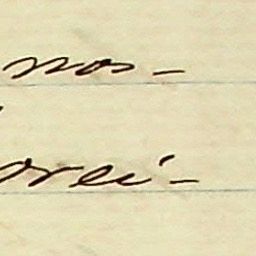 nos-
orei-